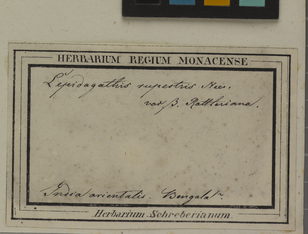 HERBARIUM REGIUM MONACENSE
Lepidagathis rupestris Nees.
var β. Rottleriana.
India orientalis. Bengala
Herbarium Schreberianum